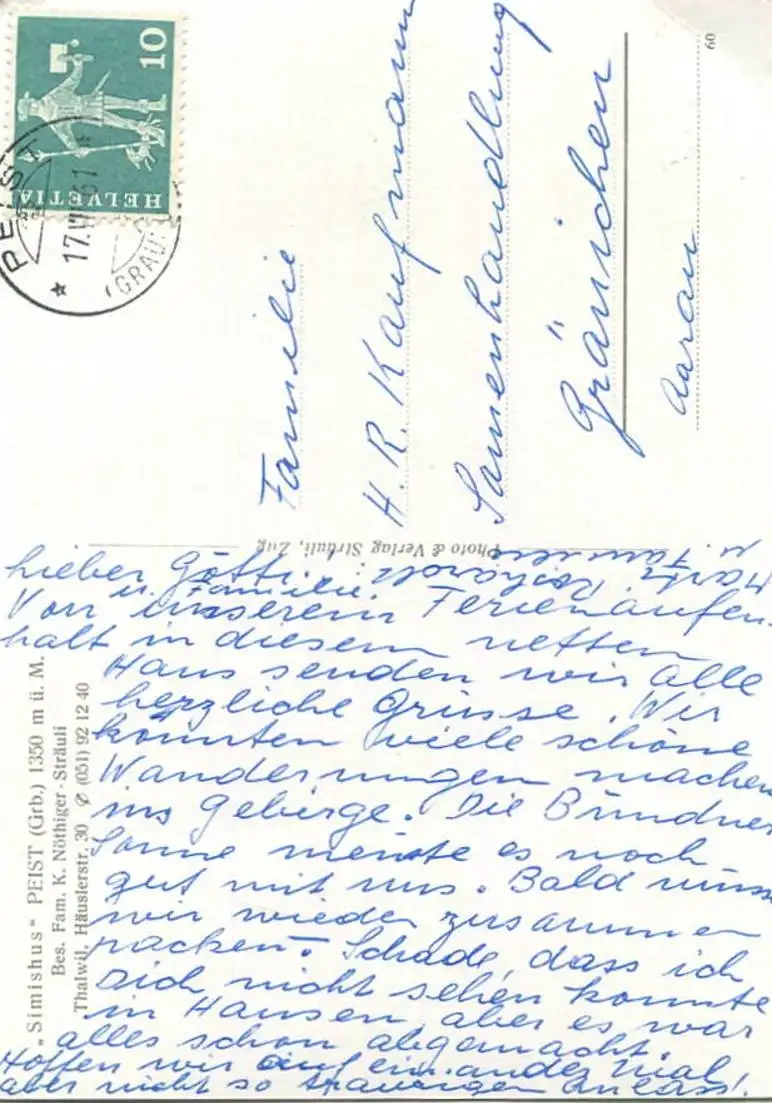 10
HELVETIA
PEIST
17.VII.61
(GRAU
60
Familie
H. R. Kaufmann
Samenhandlung
Gränichen
Aarau
Photo & Verlag Sträuli, Zug
„Simishus“ PEIST (Grb.) 1350 m ü. M.
Bes. Fam. K. Nöthiger-Sträuli
Thalwil, Häuslerstr. 30 ∅ (051) 92 12 40
Lieber Götti
u. Familie.
Von unserem Ferienaufen-
halt in diesem netten
Haus senden wir alle
herzliche Grüsse. Wir
konnten viele schöne
Wanderungen machen
ins Gebirge. Die Bündner
Sonne meinte es noch
gut mit uns. Bald müssen
wir wieder zusammen
packen. Schade, dass ich
Dich nicht sehen konnte
in Hausen, aber es war
alles schon abgemacht.
Hoffen wir auf ein ander Mal
aber nicht so traurigen Anlass!
u. Familie